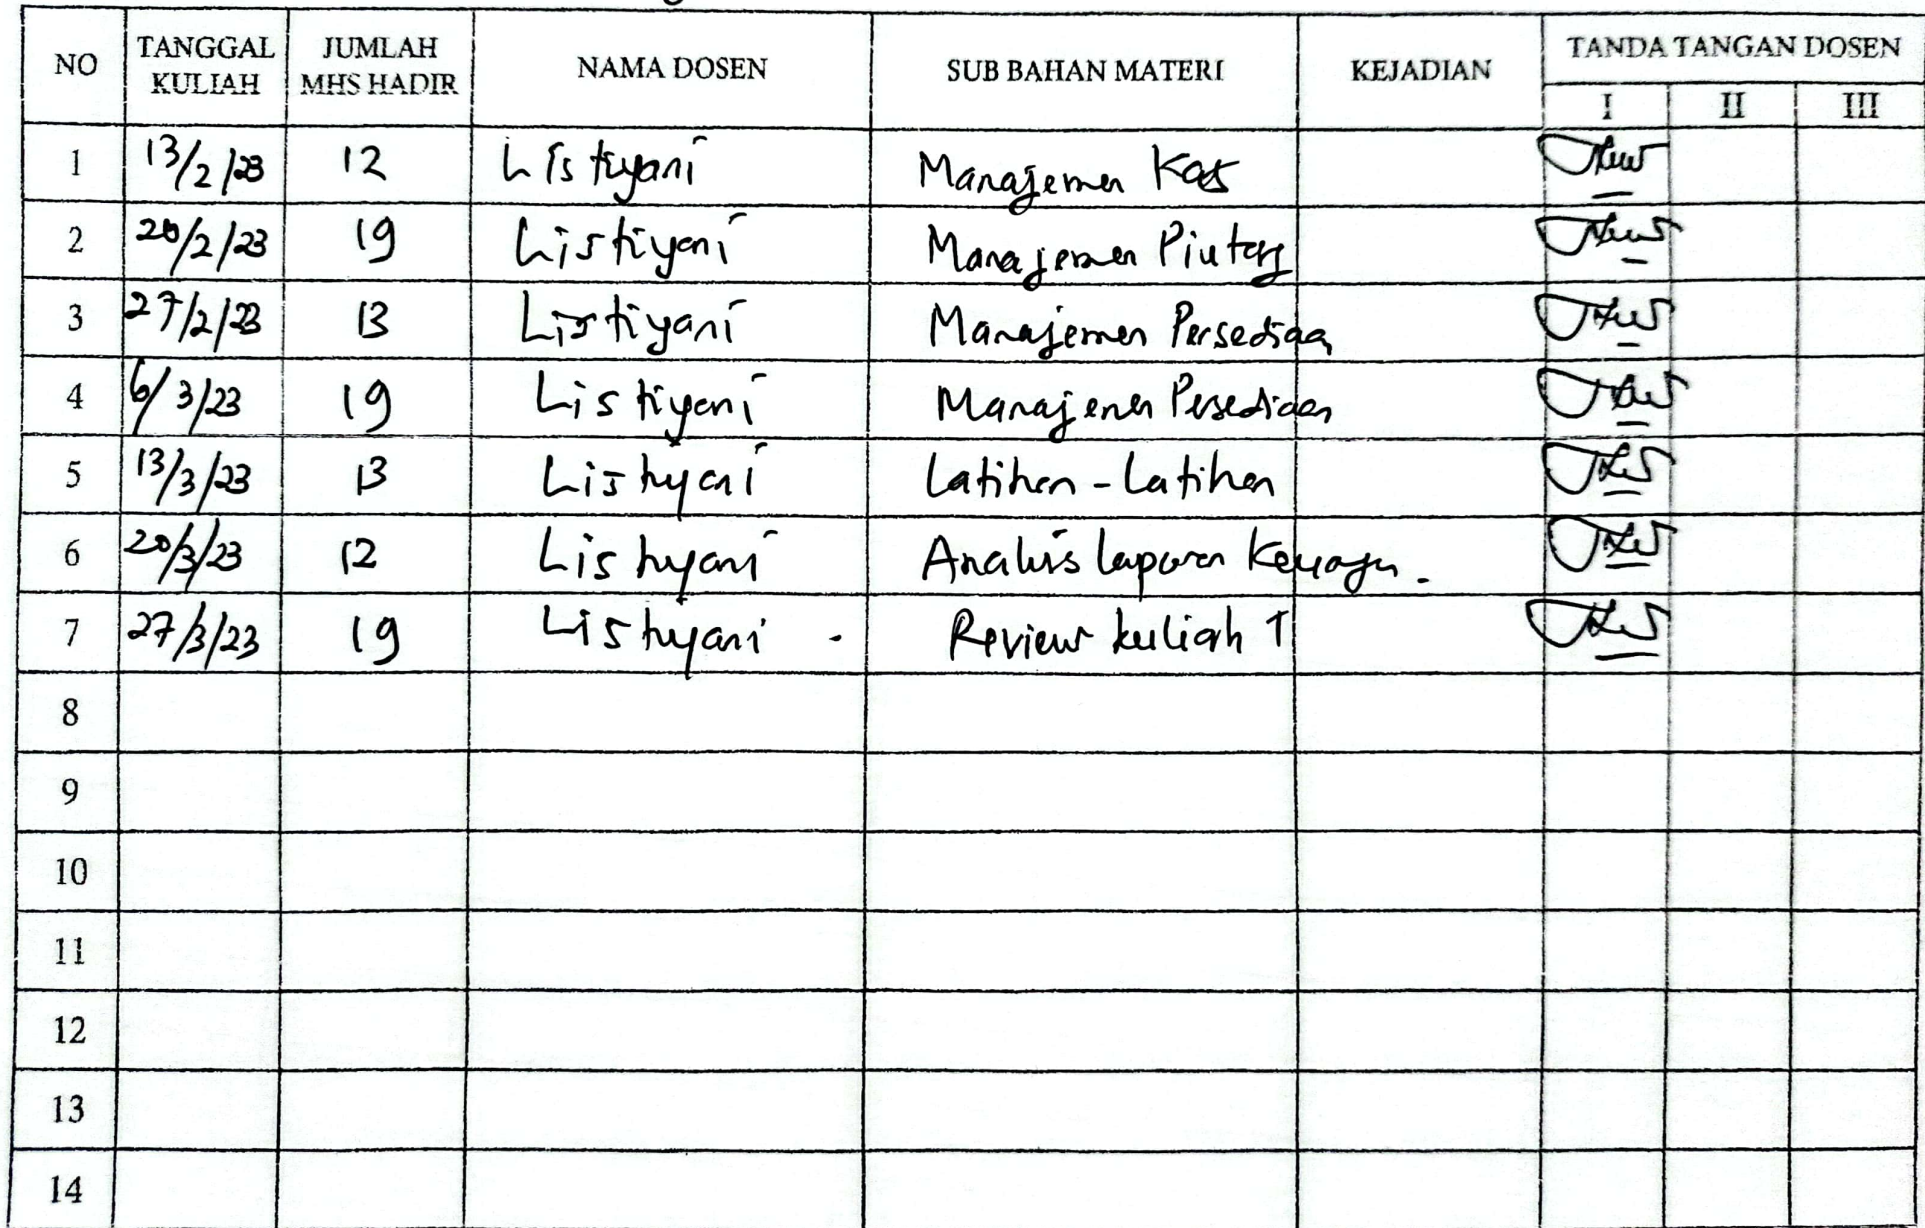 NO TANGGAL KULIAH JUMLAH MHS HADIR NAMA DOSEN SUB BAHAN MATERI KEJADIAN TANDA TANGAN DOSEN
I II III
1 13/2/23 12 Listiyani Manajemen Kas
2 20/2/23 19 Listiyani Manajemen Piutang
3 27/2/23 13 Listiyani Manajemen Persediaan
4 6/3/23 19 Listiyani Manajemen Persediaan
5 13/3/23 13 Listiyani Latihan - Latihan
6 20/3/23 12 Listiyani Analisis laporan Keuangan.
7 27/3/23 19 Listiyani Review kuliah
8
9
10
11
12
13
14